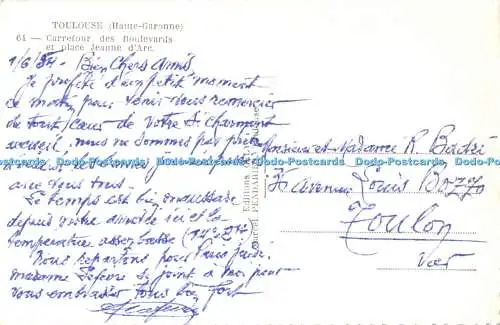 TOULOUSE (Haute-Garonne)
64 — Carrefour des Boulevards
et place Jeanne d'Arc.
1/6/54 - Bien Chers Amis
Je profite d'un petit moment
ce matin pour venir vous remercier
de tout cœur de votre si charmant
accueil, nous ne sommes pas prêts
avec vous tous.
Le temps est bien maussade
depuis votre
température assez basse (14°
Nous repartons pour Paris jeudi.
Madame Lefèvre se joint à moi pour
vous embrasser tous bien fort
Monsieur et Madame R.
Avenue Louis Bozzo
Toulon
Var
Editions
Marcel PENDARIES
Dodo-Postcards Dodo-Postcards Dodo-Postcards Dodo-Postcards Dodo-Postcards